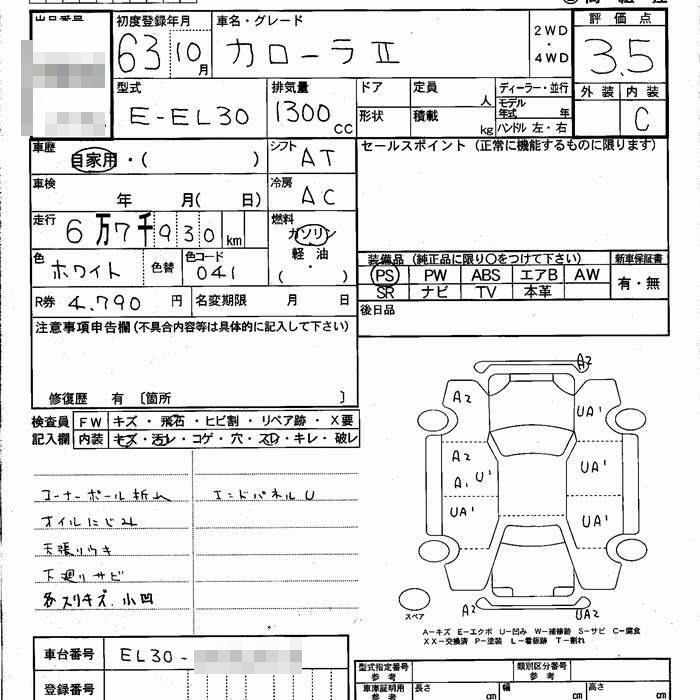 出品番号 初度登録年月 車名・グレード 2WD・4WD 評価点
63 10月 カローラⅡ 3.5
型式 排気量 ドア 定員 人 ディーラー・並行 外装 内装
E-EL30 1300cc 形状 積載 kg モデル年式 年 ハンドル 左・右 C
車歴 自家用・( ) シフト AT セールスポイント (正常に機能するものに限ります)
車検 年 月( 日) 冷房 AC
走行 6万7千930km 燃料 ガソリン
軽油
( )
色 ホワイト 色替 色コード 041
装備品 (純正品に限り○をつけて下さい) 新車保証書
PS PW ABS エアB AW 有・無
SR ナビ TV 本革
R券 4,790円 名変期限 月 日 後日品
注意事項申告欄 (不具合内容等は具体的に記入して下さい)
修復歴 有 〔箇所 〕
検査員 FW キズ・飛石・ヒビ割・リペア跡・X要
記入欄 内装 キズ・汚レ・コゲ・穴・スレ・キレ・破レ
コーナーポール折れ エンドパネルU
オイルにじみ
天張りウキ
下廻りサビ
各スリキズ、小凹
A2
A2 UA1
A2 UA1
A1 U1
UA1 UA1
スペア A2 UA2
A-キズ E-エクボ U-凹み W-補修跡 S-サビ C-腐食
XX-交換済 P-塗装 L-看板跡 T-割れ
車台番号 EL30-
登録番号
型式指定番号 参考 類別区分番号 参考
車庫証明用 参考 長さ cm 幅 cm 高さ cm